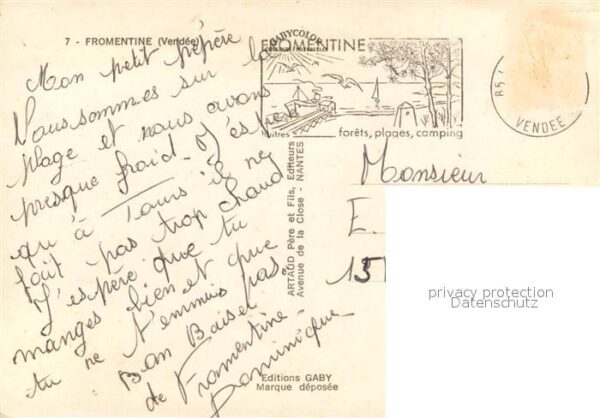 7 - FROMENTINE (Vendée)
Mon petit pépère
Nous sommes sur la
plage et nous avons
presque froid - J'espère
qu'à Tours il ne
fait pas trop chaud
J'espère que tu
manges bien et que
tu ne t'ennuies pas.
Bon Baiser
de Fromentine -
Dominique -
GABYCOLOR
FROMENTINE
Huitres
forêts, plages, camping
85
VENDEE
ARTAUD Père et Fils, Editeurs
Avenue de la Close - NANTES
Monsieur
E.
15
privacy protection
Datenschutz
Editions GABY
Marque déposée